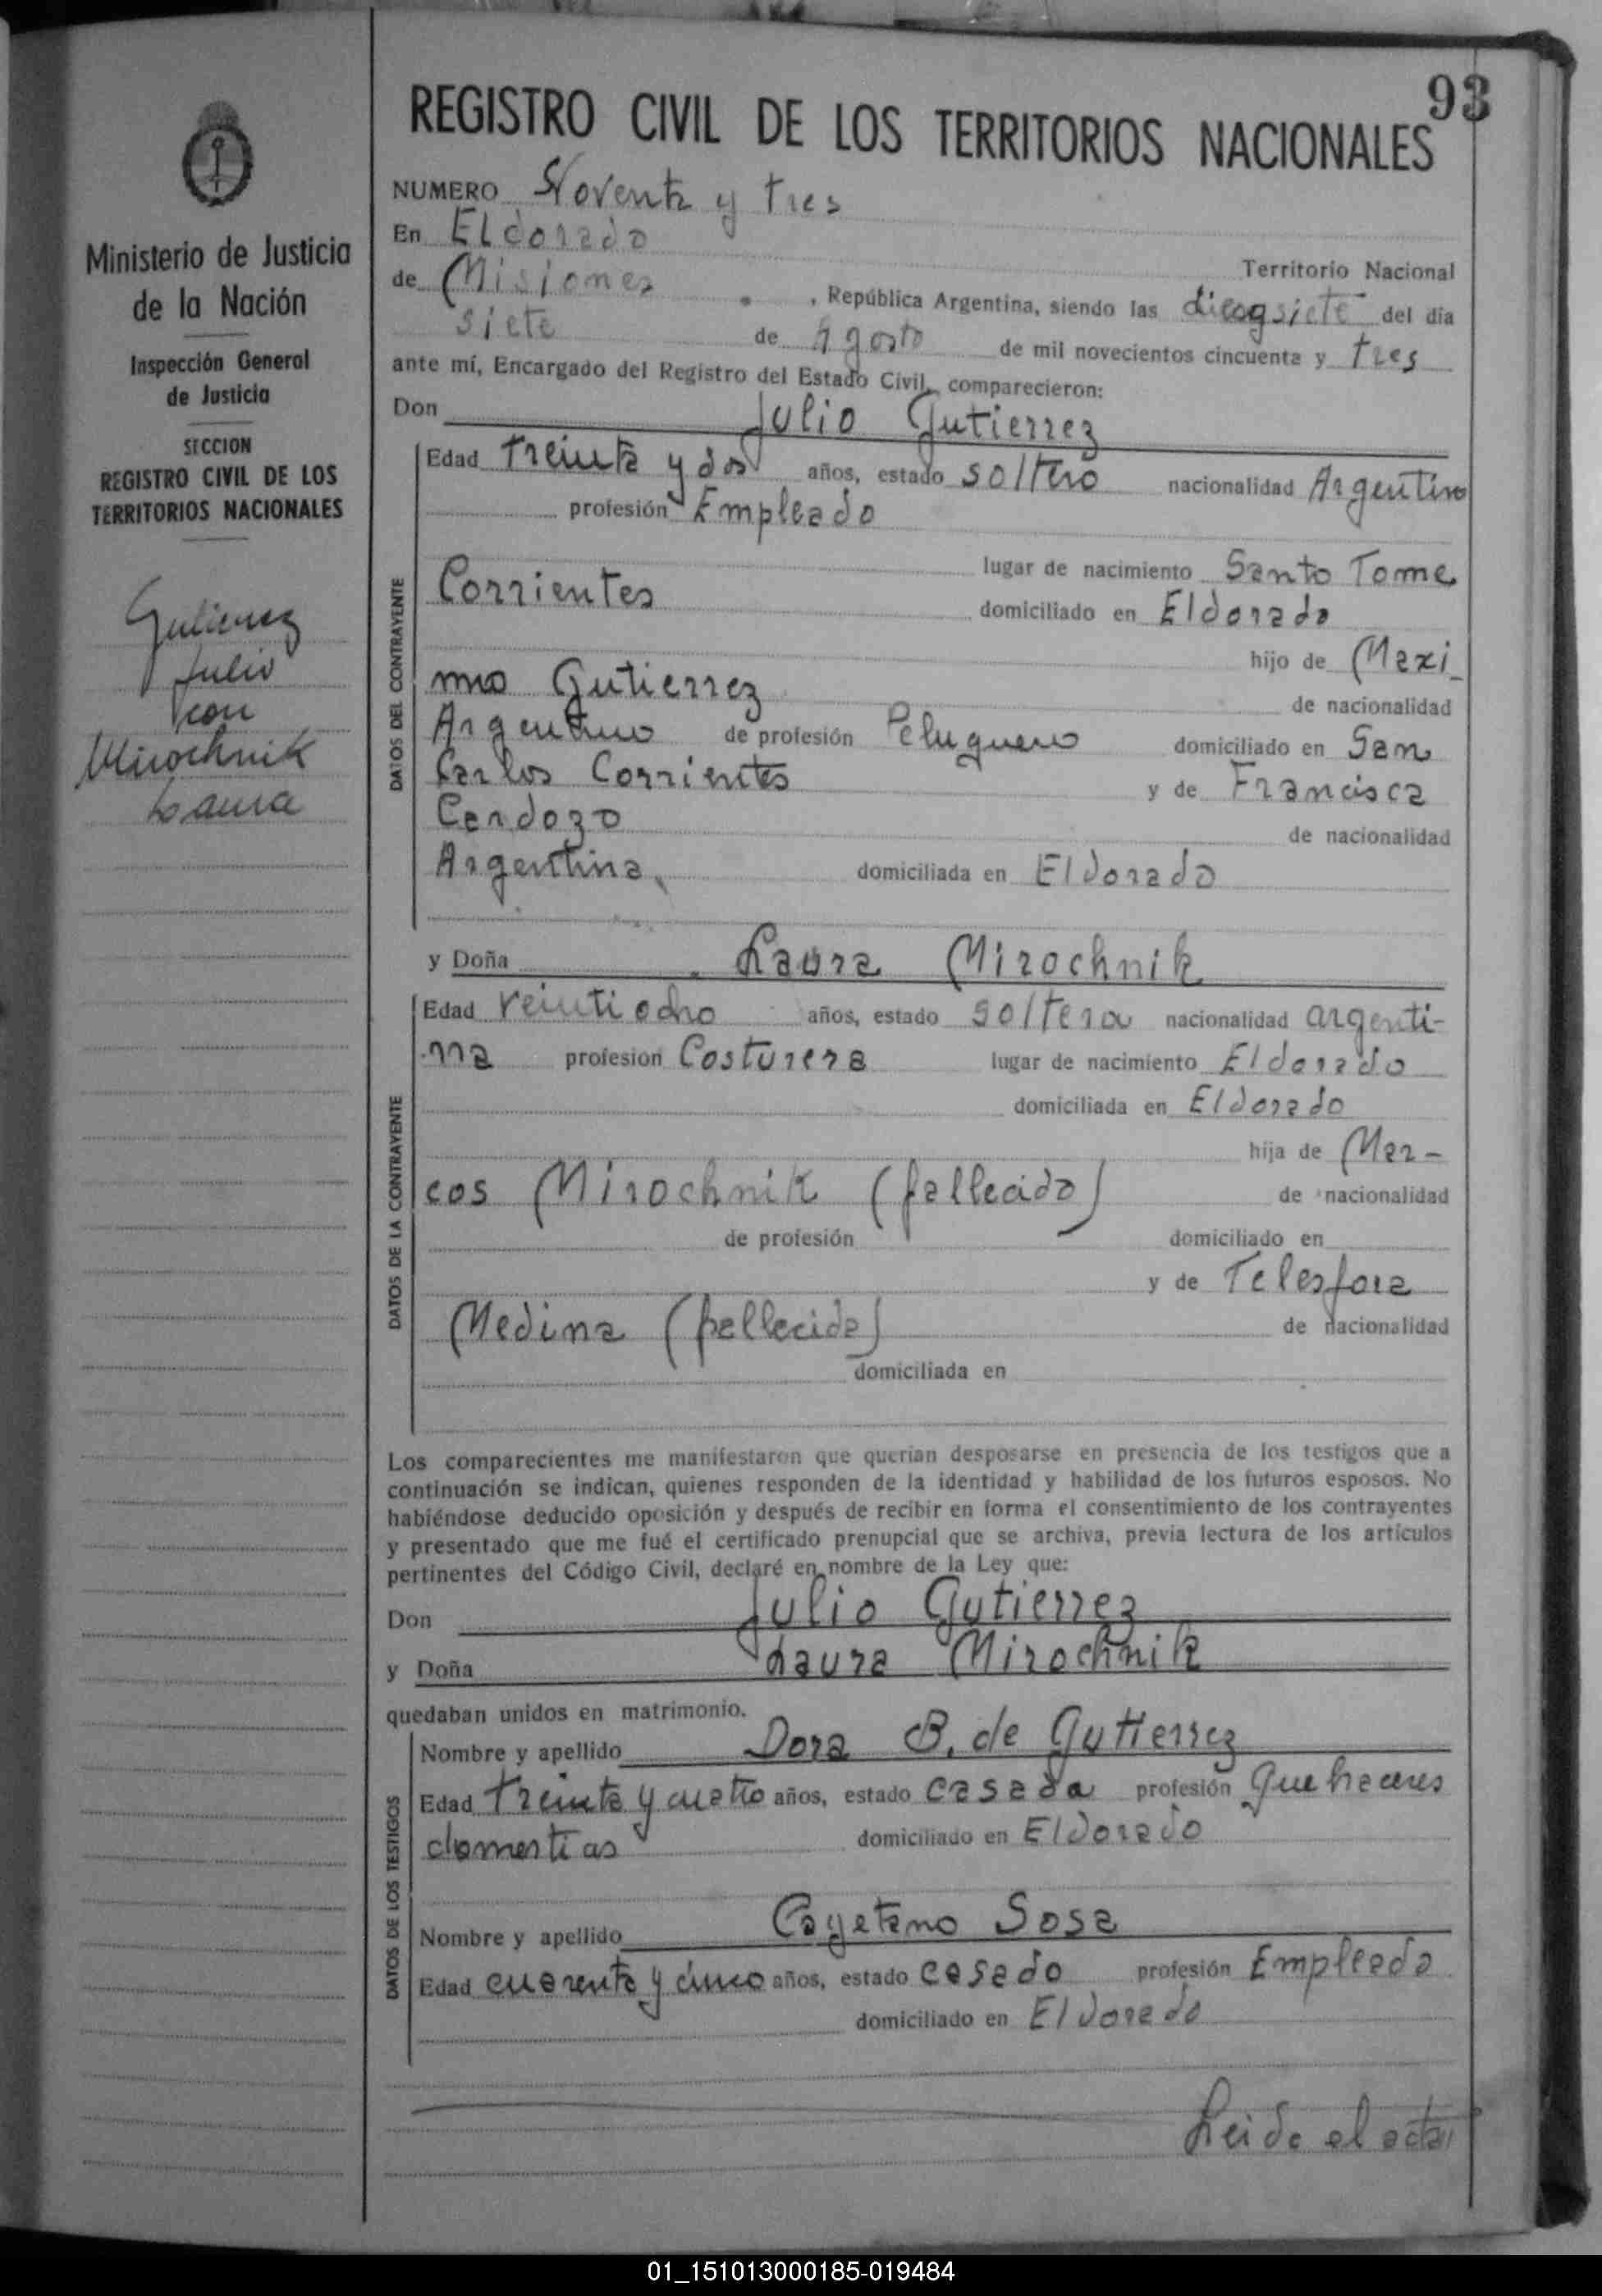 93
REGISTRO CIVIL DE LOS TERRITORIOS NACIONALES
NUMERO Noventa y tres
En Eldorado
Territorio Nacional
de Misiones , República Argentina, siendo las diecysiete del día
siete de Agosto de mil novecientos cincuenta y tres
ante mí, Encargado del Registro del Estado Civil, comparecieron:
Don Julio Gutierrez
Edad treinta y dos años, estado soltero nacionalidad Argentino
profesión Empleado
lugar de nacimiento Santo Tome
Corrientes domiciliado en Eldorado
hijo de Maxi_
mo Gutierrez de nacionalidad
Argentino de profesión Peluquero domiciliado en San
Carlos Corrientes y de Francisca
Cardozo de nacionalidad
Argentina domiciliada en Eldorado
y Doña Laura Mirochnik
Edad veintiocho años, estado soltera nacionalidad argenti-
na profesion Costurera lugar de nacimiento Eldorado
domiciliada en Eldorado
hija de Mar-
cos Mirochnik (fallecido) de nacionalidad
de profesión domiciliado en
y de Telesfora
Medina (fallecida) de nacionalidad
domiciliada en
Los comparecientes me manifestaron que querían desposarse en presencia de los testigos que a
continuación se indican, quienes responden de la identidad y habilidad de los futuros esposos. No
habiéndose deducido oposición y después de recibir en forma el consentimiento de los contrayentes
y presentado que me fué el certificado prenupcial que se archiva, previa lectura de los artículos
pertinentes del Código Civil, declaré en nombre de la Ley que:
Don Julio Gutierrez
y Doña Laura Mirochnik
quedaban unidos en matrimonio.
Nombre y apellido Dora B. de Gutierrez
Edad treinta y cuatro años, estado casada profesión Quehaceres
domesticas domiciliado en Eldorado
Nombre y apellido Cayetano Sosa
Edad cuarenta y cinco años, estado casado profesión Empleado
domiciliado en Eldorado
Leida el acta
DATOS DEL CONTRAYENTE
DATOS DE LA CONTRAYENTE
DATOS DE LOS TESTIGOS
Ministerio de Justicia
de la Nación
Inspección General
de Justicia
SECCION
REGISTRO CIVIL DE LOS
TERRITORIOS NACIONALES
Gutierrez
Julio
con
Mirochnik
Laura
01_151013000185-019484